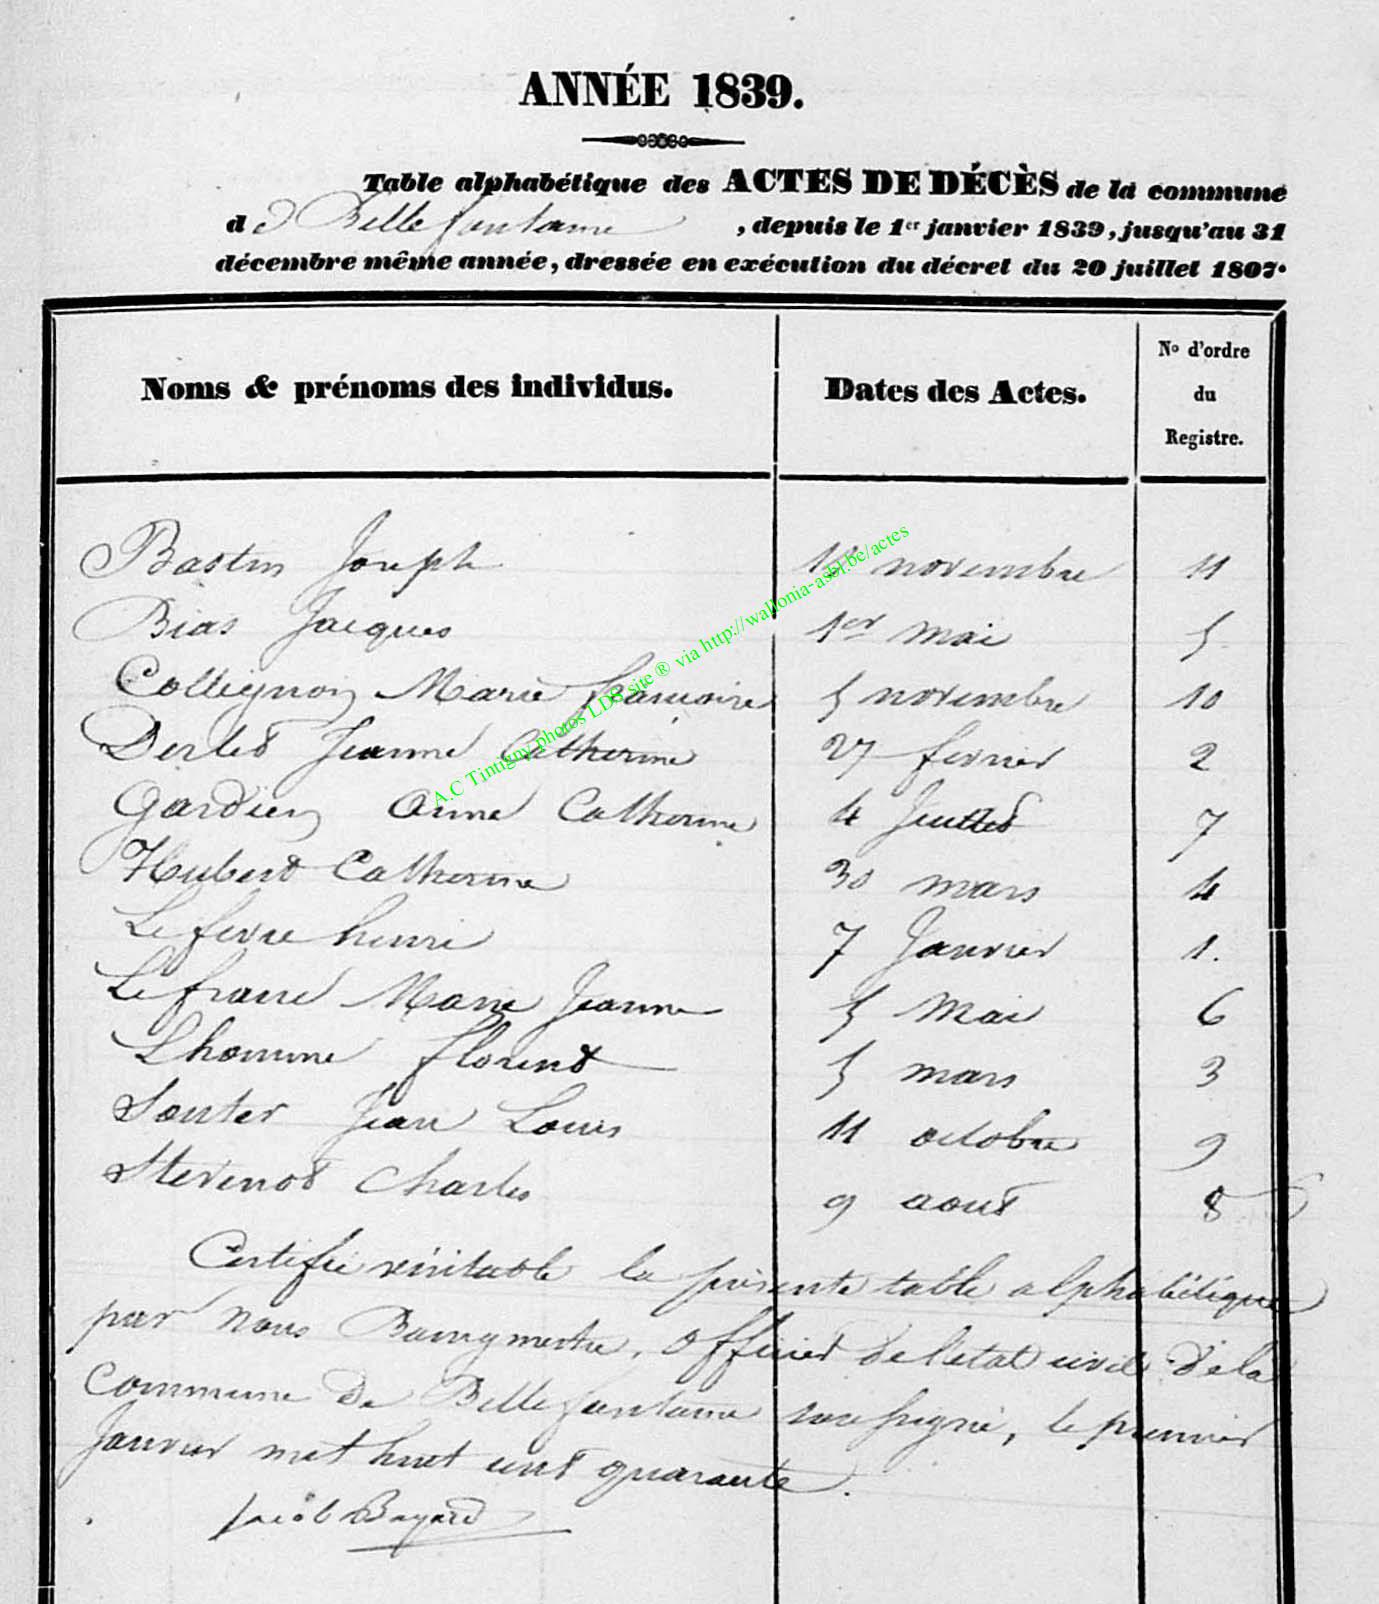 ANNÉE 1839.
Table alphabétique des ACTES DE DÉCÈS de la commune
d e Bellefontaine , depuis le 1er janvier 1839, jusqu'au 31
décembre même année, dressée en exécution du décret du 20 juillet 1807.
Noms & prénoms des individus. Dates des Actes. No d'ordre du Registre.
Bastin Joseph novembre 11
Bias Jacques 1er mai 5
Collignon Marie françoise 5 novembre 10
Derlet Jeanne Catherine 27 fevrier 2
Gardien Anne Catherine 4 Juillet 7
Hubert Catherine 30 mars 4
Lefevre henri 7 Janvier 1.
Lefranc Marie Jeanne 5 Mai 6
Lhomme florent 5 mars 3
Souter Jean Louis 11 octobre 9
Stevenot Charles 9 aout 8
Certifié véritable la présente table alphabétique
par nous Bourgmestre, officier de l'etat civil de la
Commune de Bellefontaine soussigné, le premier
Janvier mil huit cent quarante.
Jacob Bayard
A.C Tintigny photos LDS site ® via http://wallonia-asbl.be/actes